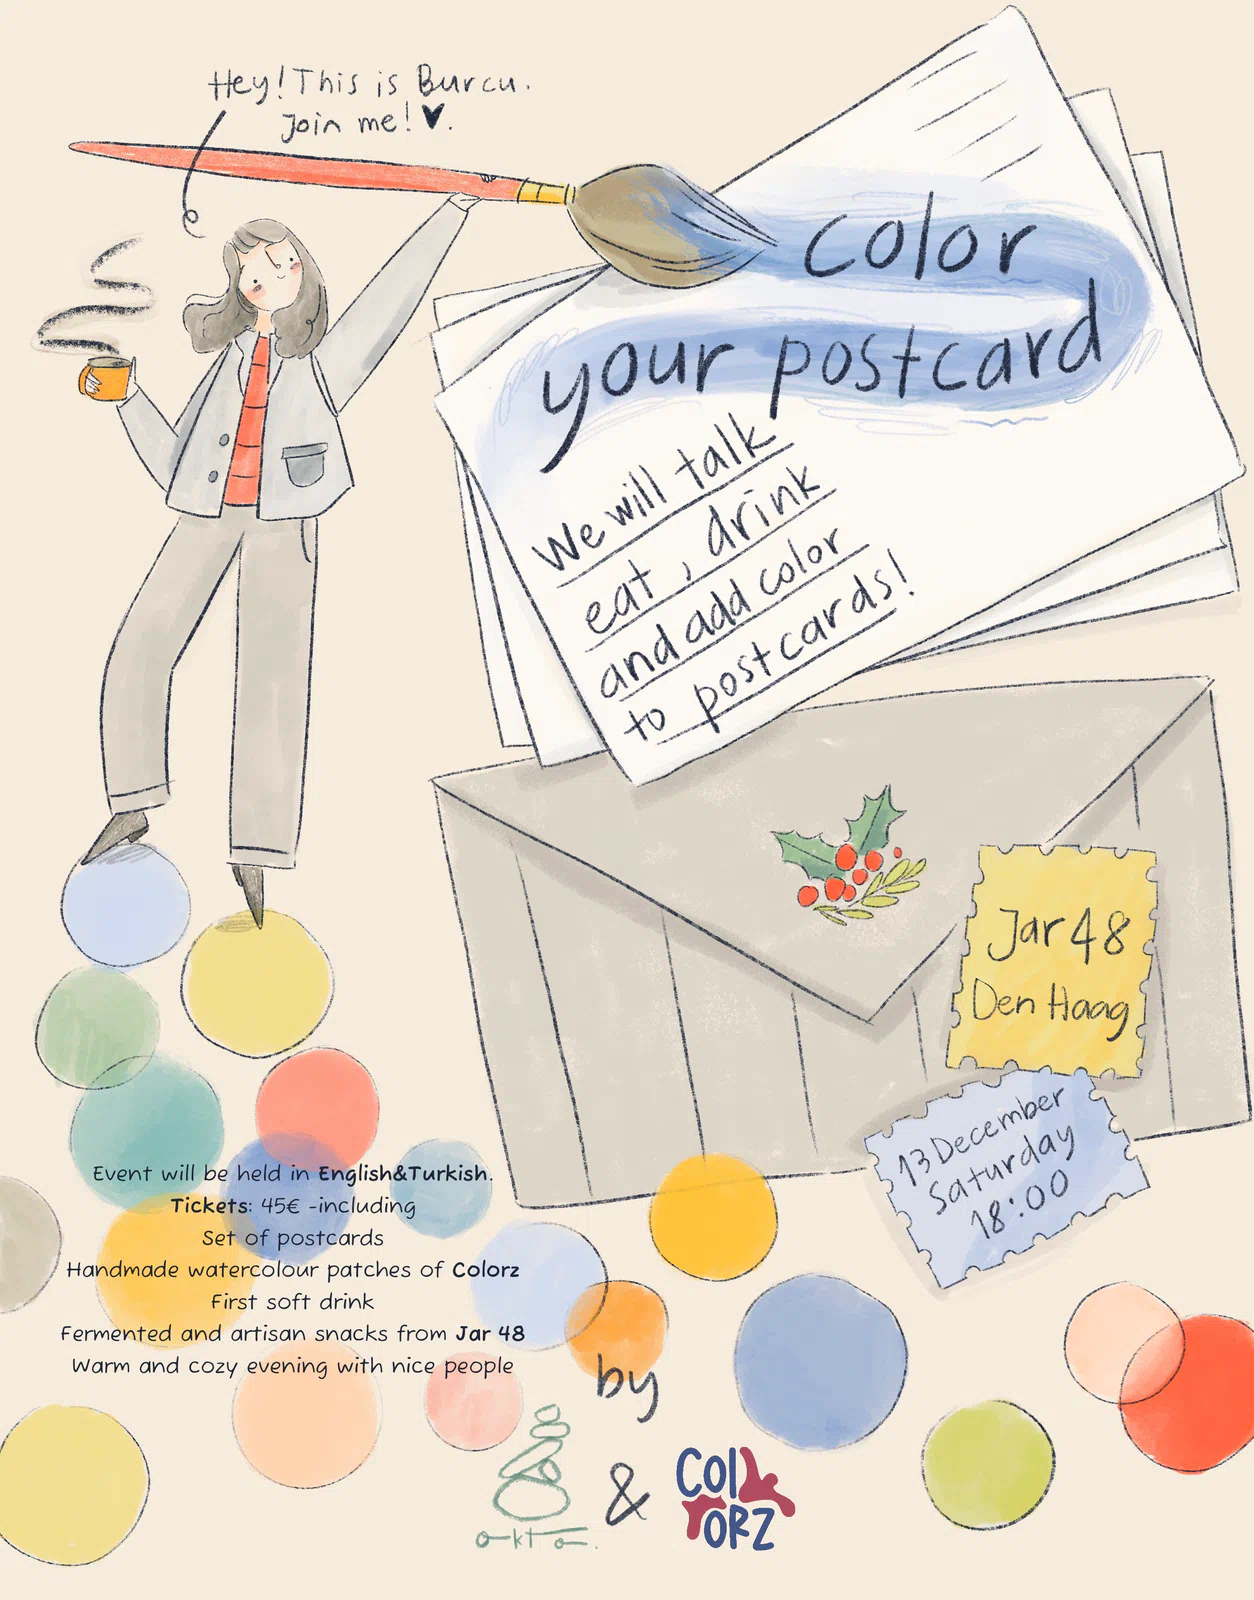 Hey! This is Burcu.
Join me! ♥.
color
your postcard
We will talk
eat, drink
and add color
to postcards!
Jar 48
Den Haag
13 December
Saturday
18:00
Event will be held in English&Turkish.
Tickets: 45€ -including
Set of postcards
Handmade watercolour patches of Colorz
First soft drink
Fermented and artisan snacks from Jar 48
Warm and cozy evening with nice people
by
okto.
&
COl
ORZ